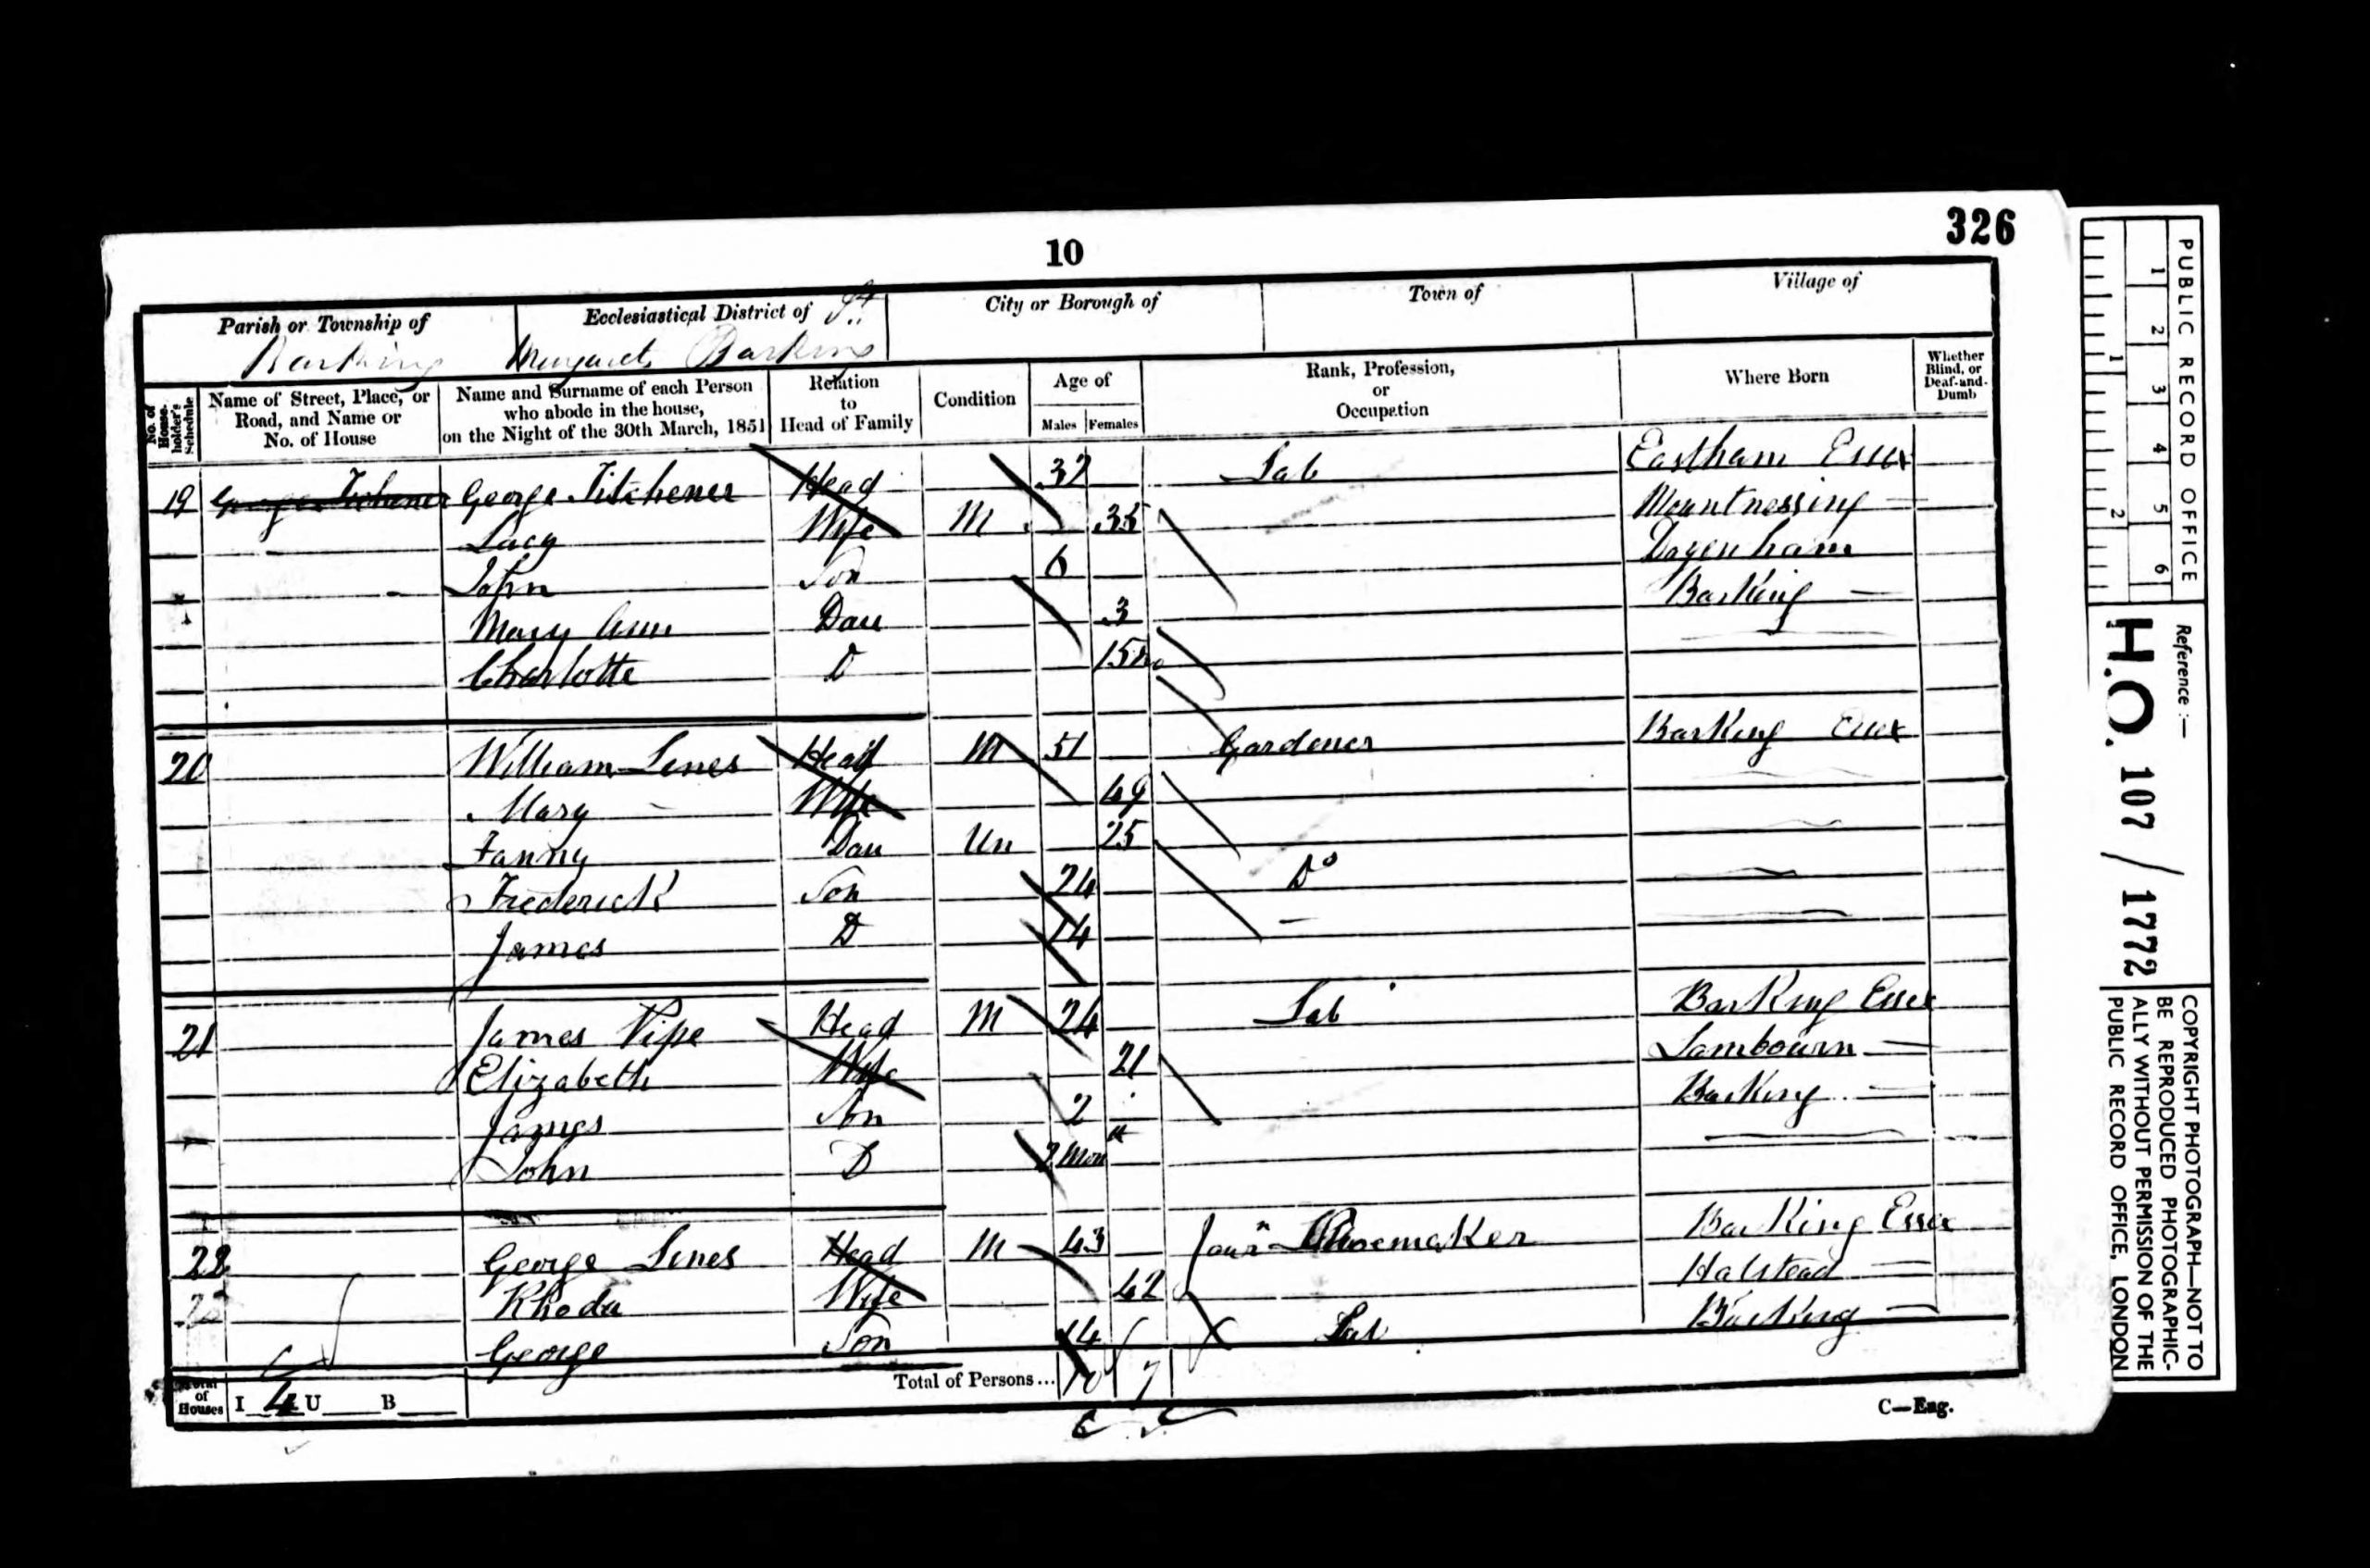 326
10
Parish or Township of
Barking
Ecclesiastical District of St
Margarets Barking
City or Borough of
Town of
Village of
No. of House-holder's Schedule
Name of Street, Place, or Road, and Name or No. of House
Name and Surname of each Person who abode in the house, on the Night of the 30th March, 1851
Relation to Head of Family
Condition
Age of
Males Females
Rank, Profession, or Occupation
Where Born
Whether Blind, or Deaf-and-Dumb
19 George Titchener George Titchener Head 37 Lab Eastham Essex
Lucy Wife M 35 Mountnessing —
John Son 6 Dagenham
Mary Ann Dau 3 Barking —
Charlotte D 15
20 William Lines Head M 51 Gardener Barking Essex
Mary — Wife 49
Fanny Dau Un 25
Frederick Son 24 Do
James D 14 —
21 James Pipe Head M 24 Lab Barking Essex
Elizabeth Wife 21 Lambourn —
James Son 2 Barking —
John D 2 Mon
22 George Lines Head M 43 Journ Shoemaker Barking Essex
Rhoda Wife 42 Halstead —
George Son 14 Lab Barking —
Total of Houses I 4 U B
Total of Persons... 10 7
C—Eng.
PUBLIC RECORD OFFICE
1 2 3 4 5 6
1 2
Reference :—
H.O. 107 / 1772
COPYRIGHT PHOTOGRAPH—NOT TO
BE REPRODUCED PHOTOGRAPHIC-
ALLY WITHOUT PERMISSION OF THE
PUBLIC RECORD OFFICE, LONDON